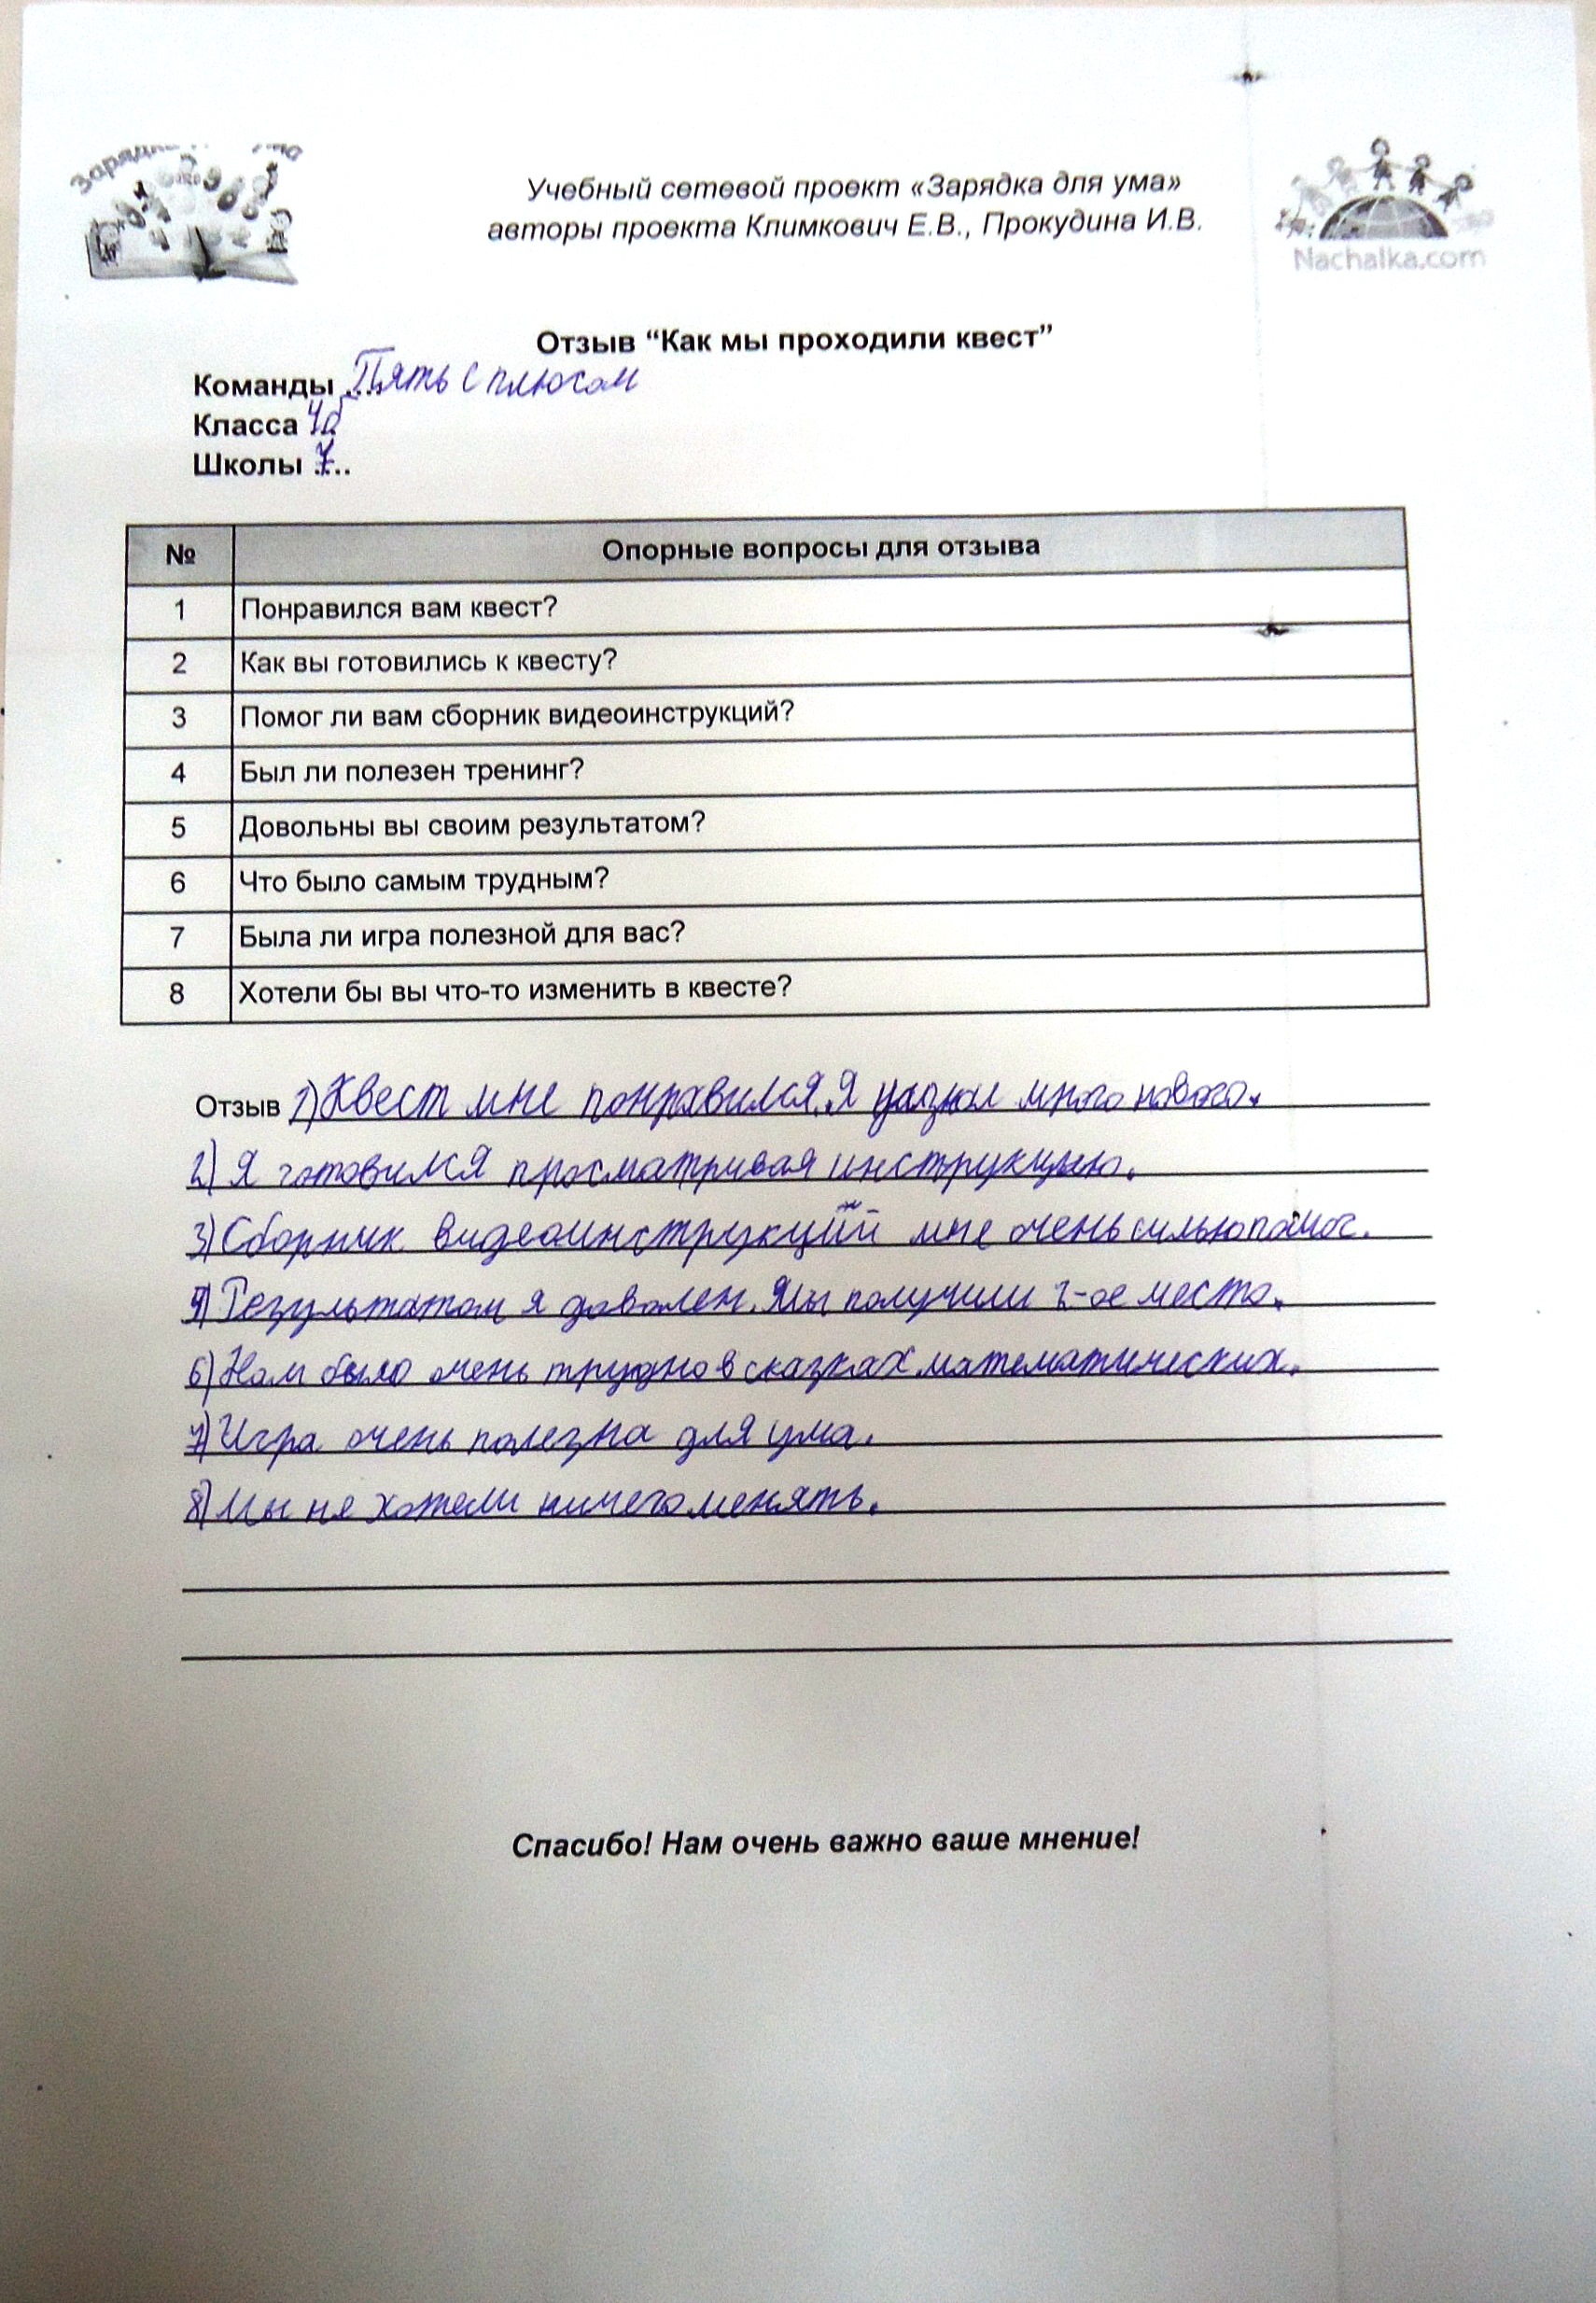 Зарядка
Учебный сетевой проект «Зарядка для ума»
авторы проекта Климкович Е.В., Прокудина И.В.
Nachalka.com
Отзыв “Как мы проходили квест”
Команды .... Пять с плюсом
Класса 4б
Школы 7...
№ Опорные вопросы для отзыва
1 Понравился вам квест?
2 Как вы готовились к квесту?
3 Помог ли вам сборник видеоинструкций?
4 Был ли полезен тренинг?
5 Довольны вы своим результатом?
6 Что было самым трудным?
7 Была ли игра полезной для вас?
8 Хотели бы вы что-то изменить в квесте?
Отзыв 1) Квест мне понравился. Я узнал много нового.
2) Я готовился просматривая инструкцию.
3) Сборник видеоинструкций мне очень сильно помог.
5) Результатом я доволен. Мы получили 2-ое место.
6) Нам было очень трудно в сказках математических.
7) Игра очень полезна для ума.
8) Мы не хотели ничего менять.
Спасибо! Нам очень важно ваше мнение!